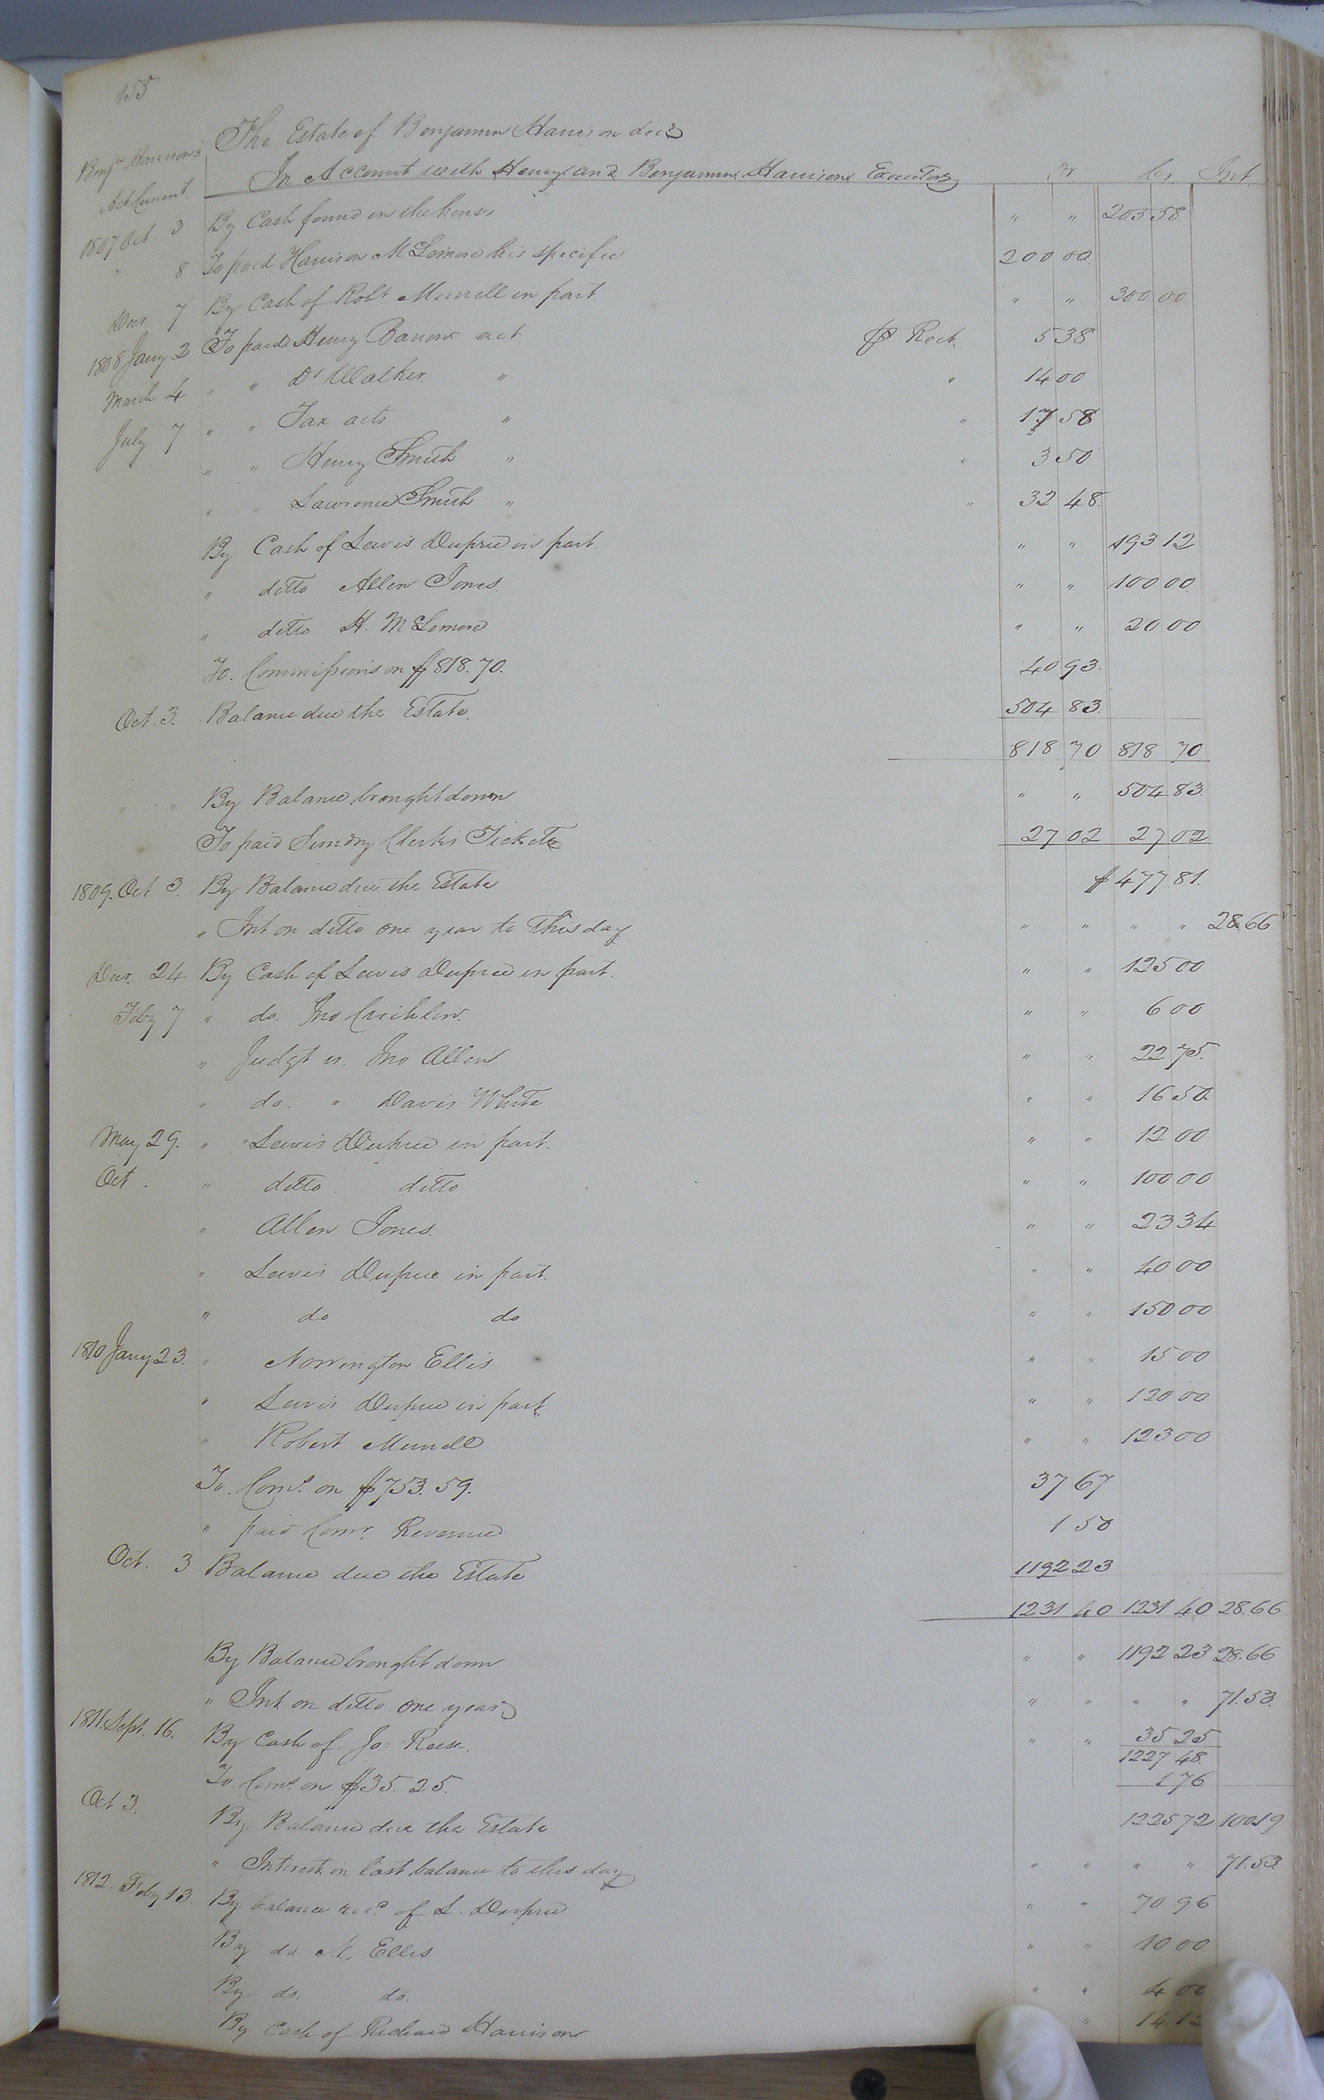 155
The Estate of Benjamin Harrison decd
Benjn Harrison's Act Current
In Account with Henry and Benjamin Harrison Executors Dr Cr. Int.
1807 Oct. 3 By Cash found in the house " " 205 58
8 To paid Harrison McLemore his specific 200 00
Decr 7 By Cash of Robt Murrell in part " " 300 00
1808 Jany 2 To paid Henry Barrow act. pr Rect. 5 38
March 4 " " Dr Walker " " 14 00
July 7 " " Tax acts " " 17 58
" " Henry Smith " " 3 50
" " Lawrence Smith " " 32 48
By Cash of Lewis Dupree in part. " " 193 12
" ditto Allen Jones. " " 100 00
" ditto H. McLemore " " 20 00
To. Commissions on $818.70. 40 93
Oct. 3. Balance due the Estate. 504 83
818 70 818 70
" " By Balance brought down " " 504 83
To paid Sundry Clerks Tickets 27 02 27 02
1809. Oct 3. By Balance due the Estate $477 81.
" Int on ditto one year to this day " " " " 28.66
Decr. 24 By Cash of Lewis Dupree in part. " " 125 00
Feby 7 " do. Jno Crichlow. " " 6 00
" Judgt vs. Jno Allen " " 22 75.
" do. " Davis White " " 16 50
May 29. " Lewis Dupree in part. " " 12 00
Oct. " ditto ditto " " 100 00
" Allen Jones. " " 23 34
" Lewis Dupree in part. " " 40 00
" do do " " 150 00
1810 Jany 23. " Norrington Ellis " " 15 00
" Lewis Dupree in part " " 120 00
" Robert Murrell " " 123 00
To. Coms. on $753.59. 37 67
" paid Comr. Revenue 1 50
Oct. 3 Balance due the Estate 1192 23
1231 40 1231 40 28.66
By Balance brought down " " 1192 23 28.66
" Int on ditto one year " " " " 71.53.
1811. Sept. 16. By Cash of Jo: Reese. " " 35 25
1227 48.
To. Coms. on $35.25. 1 76
Oct 3. By Balance due the Estate 1225 72 100.19
" Interest on last balance to this day " " " " 71.53
1812. Feby 13. By balance recd. of L. Dupree " " 70 96
By do N. Ellis " " 10 00
By do. do. " " 4 00
By Cash of Richard Harrison " 14